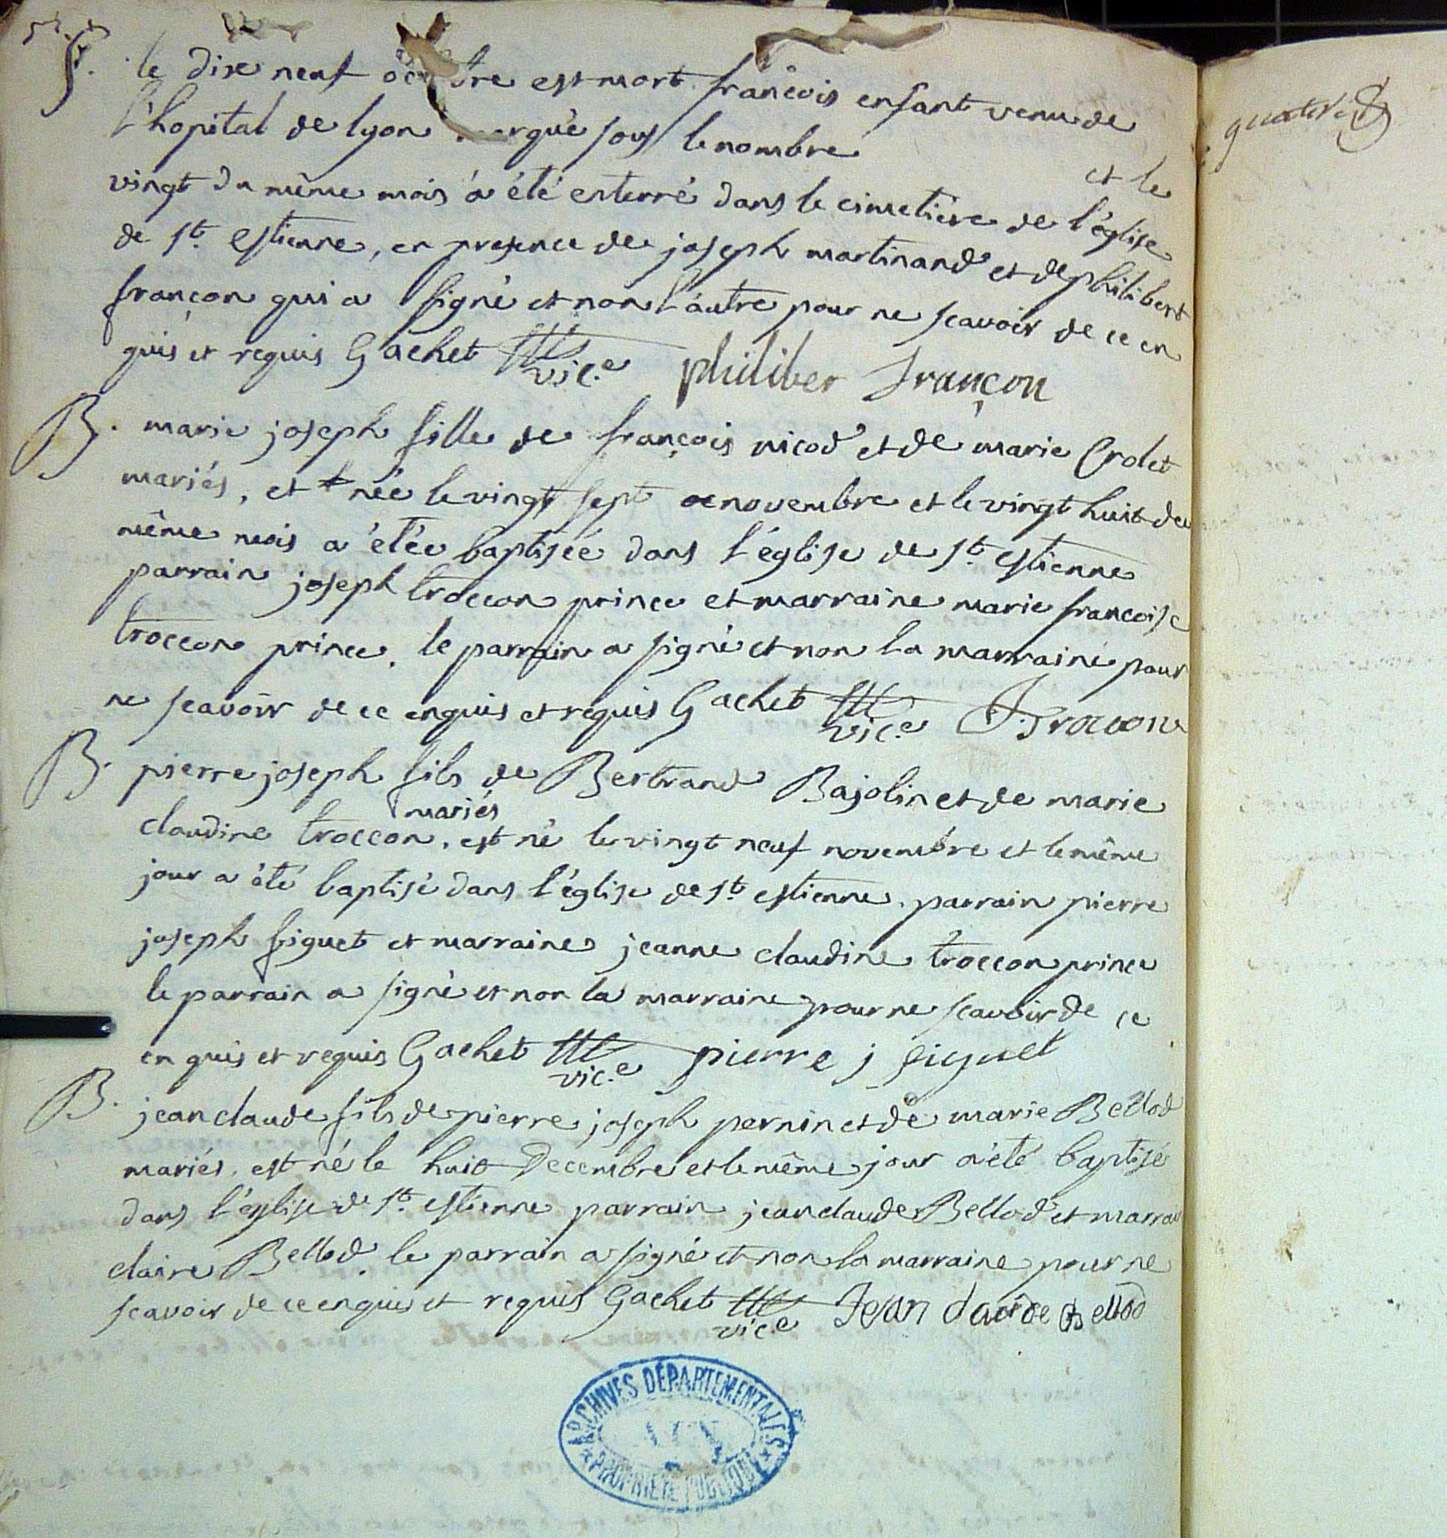 S. le dixe neuf octobre est mort françois enfant venu de
l'hopital de lyon marqué sous le nombre
et le
vingt du même mois a été enterré dans le cimetière de l'église
de st. estienne, en presence de joseph martinand et de philibert
françon qui a signé et non l'autre pour ne scavoir de ce en
quis et requis Gachet vic.e philiber françon
B. marie joseph fille de françois nicod et de marie Crolet
mariés, et née le vingt sept novembre et le vingt huit du
même mois a étée baptisée dans l'église de st. estienne
parrain joseph troccon prince et marraine marie francoise
troccon prince. le parrain a signé et non la marraine pour
ne scavoir de ce enquis et requis Gachet vic.e J. Troccon
B. pierre joseph fils de Bertrand Bajolin et de marie
mariés
claudine troccon, est né le vingt neuf novembre et le même
jour a été baptisé dans l'église de st. estienne. parrain pierre
joseph figuet et marraine jeanne claudine troccon prince
le parrain a signé et non la marraine pour ne scavoir de ce
en quis et requis Gachet vic.e pierre j figuet
B. jean claude fils de pierre joseph pernin et de marie Bellod
mariés, est né le huit Decembre et le même jour a été baptisé
dans l'église de st. estienne parrain jean claude Bellod et marrai
claire Bellod. le parrain a signé et non la marraine pour ne
scavoir de ce enquis et requis Gachet vic.e Jean claude Bellod
ARCHIVES DÉPARTEMENTALES
AIN
PROPRIÉTÉ PUBLIQUE